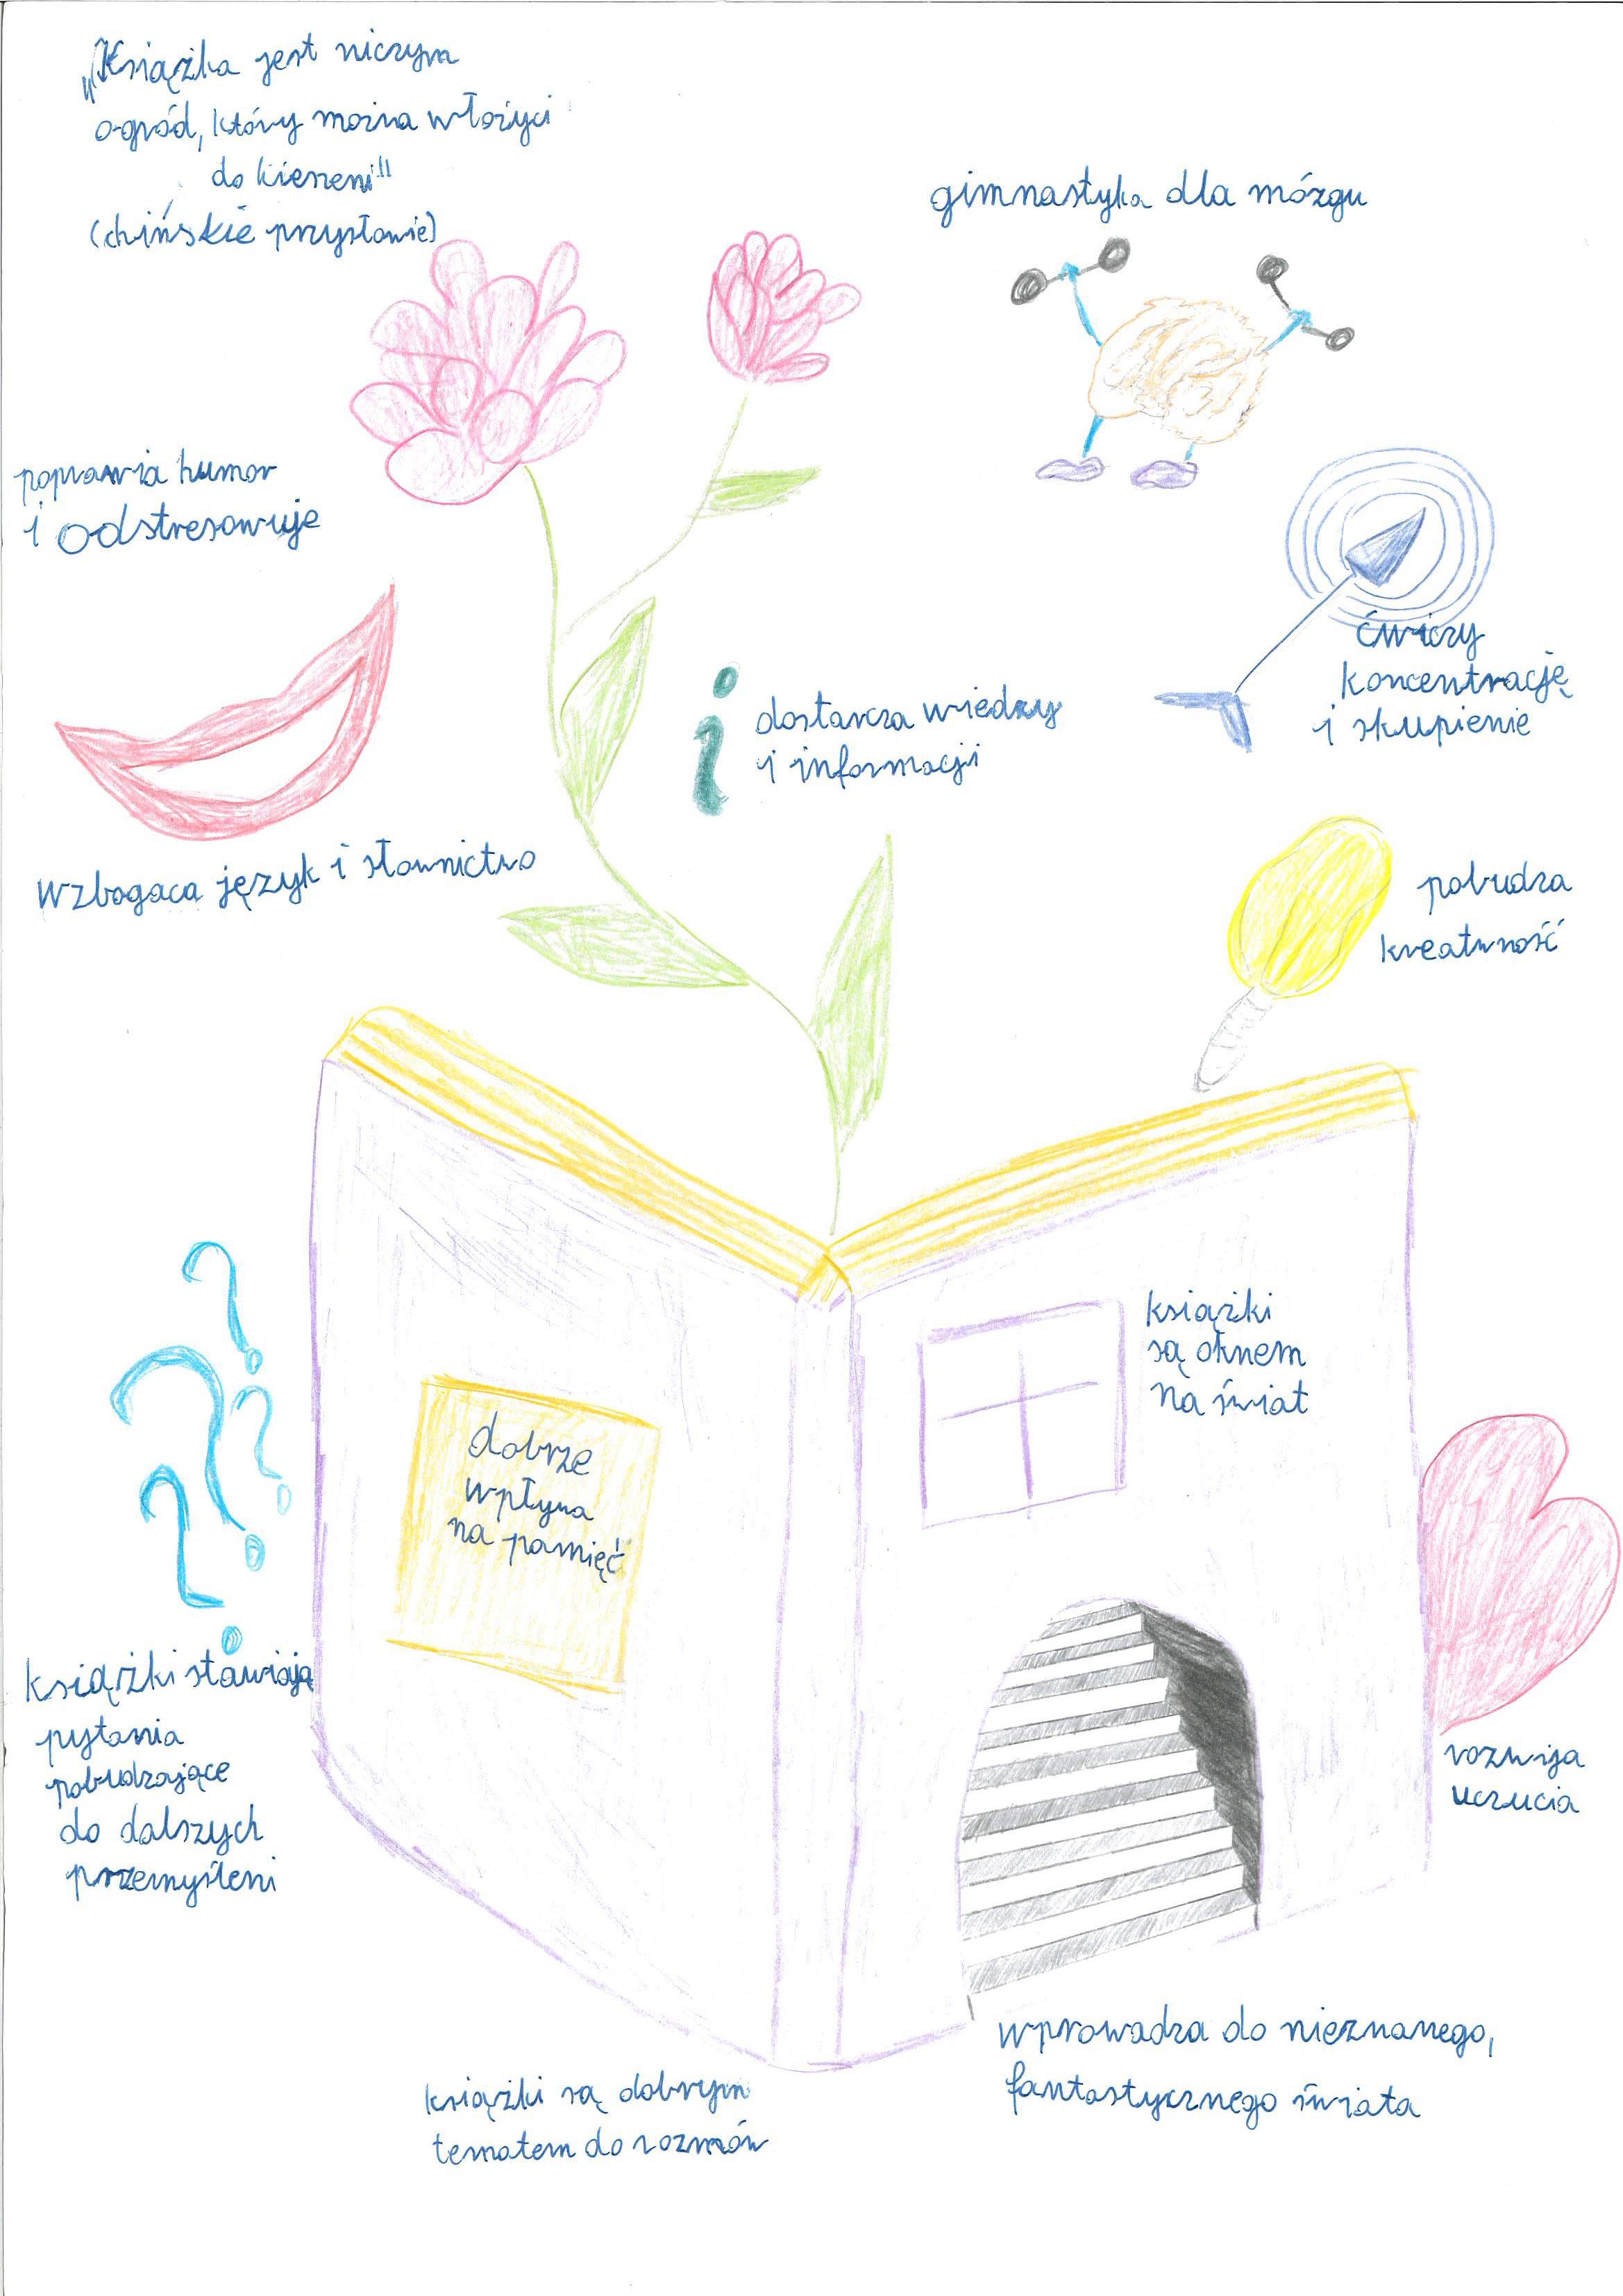 „Książka jest niczym
ogród, który można włożyć
do kieszeni"
(chińskie przysłowie)
gimnastyka dla mózgu
poprawia humor
i odstresowuje
ćwiczy
koncentrację
i skupienie
dostarcza wiedzy
i informacji
wzbogaca język i słownictwo
pobudza
kreatwność
książki
są oknem
na świat
dobrze
wpływa
na pamięć
książki stawiają
pytania
pobudzające
do dalszych
przemyśleni
rozwija
uczucia
wprowadza do nieznanego,
fantastycznego świata
książki są dobrym
tematem do rozmów